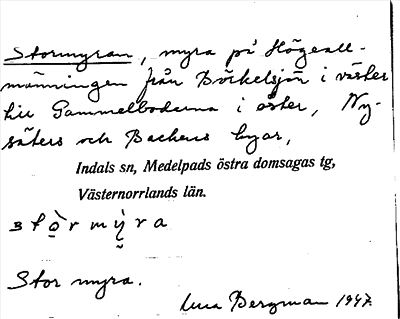 Stormyran, myra på Högeall-
männingen från Böckelsjön i väster
till Gammelbodarna i öster, Ny-
säters och Backens byar,
Indals sn, Medelpads östra domsagas tg,
Västernorrlands län.
Stor myra.
Bergman 1947.